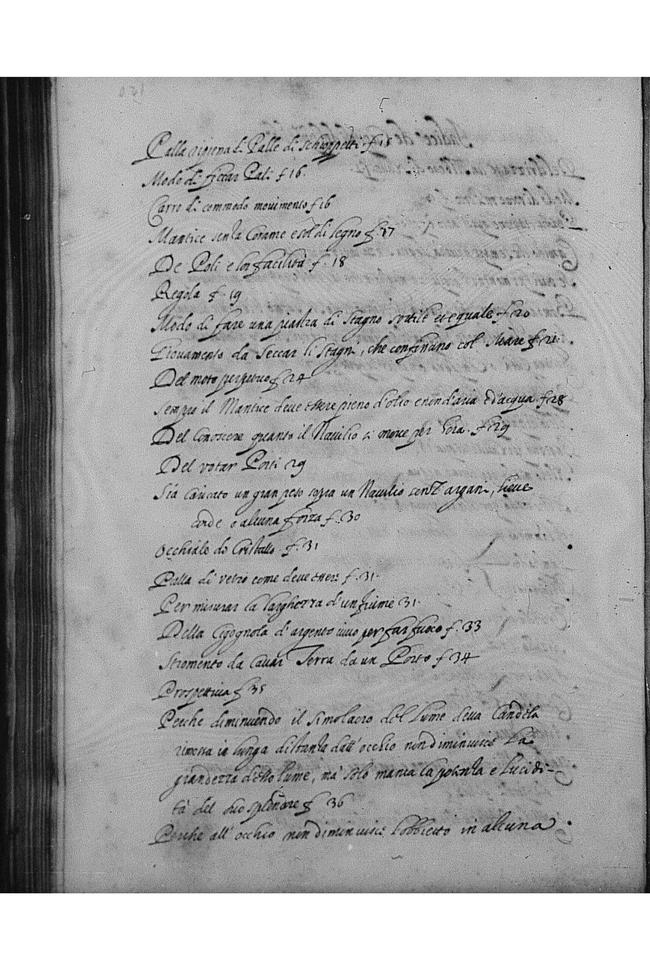 Palla ripiena di Palle di schioppetti f. 15
Modo di ficcar Pali f. 16.
Carro di commodo movimento f 16
Mantice senza Corame e sol di legno f. 17
De Poli e lor facilità f. 18
Regola f. 19
Modo di fare una piastra di Stagno sottile et equale f. 20
Giovamento da seccar li stagni, che confinano col Mare f. 21.
Del moto perpetuo f. 24
Sempre il Mantice deve essere pieno d'olio e non d'aria ò d'acqua. f. 28
Del conoscere quanto il Navilio si move per hora. f. 29
Del votar Porti 29
Sia cavato un gran peso sopra un Navilio senz' argani, lieve
corde o alcuna forza f. 30
Occhiale de Cristallo. f. 31
Palla di vetro come deve essere f. 31.
Per misurar la larghezza d'un fiume 31.
Della Cigognola d'argento vivo per far fuoco f. 33
Stromento da Cavar Terra da un Porto f. 34
Prospettiva f. 35
Perche diminuendo il simolacro del lume della Candela
rimossa in lunga distanza dall' occhio non diminuisce la
grandezza d'esso lume, mà solo manca la potenza e lucidi-
tà del suo splendore f. 36
Perche all' occhio non diminuisce l'obbietto in alcuna